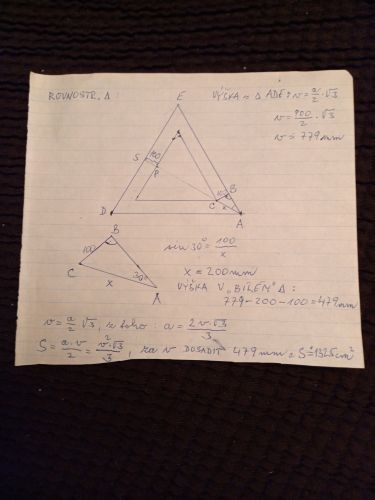 ROVNOSTR. Δ:
VÝŠKA v Δ ADE: v = a/2 · √3
v = 900/2 · √3
v ≐ 779 mm
E
S 100 P
100 B
C x
D A
B
100
C 30°
x
A
sin 30° = 100/x
x = 200 mm
VÝŠKA V „BÍLÉM" Δ:
779-200-100=479 mm
v = a/2 √3, z toho: a = 2v·√3/3
S = a·v/2 = v²·√3/3, za v DOSADIT 479 mm: S ≐ 1325 cm²